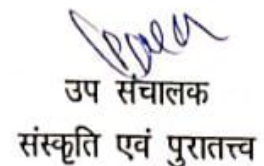 उप संचालक
संस्कृति एवं पुरातत्त्व